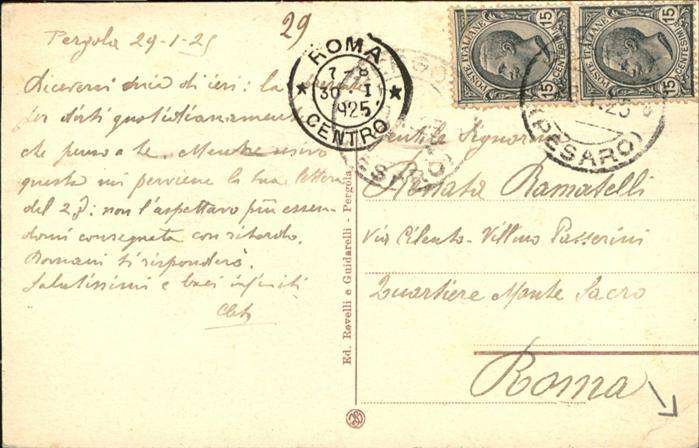 Pergola 29-1-25
29
Riceverai mia di ieri: la
per dirti quotidianamente
che penso a te. Mentre scrivo
questa mi perviene la tua lettera
del 27: non l'aspettavo più essen-
domi consegnata con ritardo.
Domani ti risponderò.
Salutissimi e baci infiniti
ROMA
30 I
1925
CENTRO
POSTE ITALIANE
15 CENTESIMI 15
POSTE ITALIANE
15 CENTESIMI 15
(PESARO)
(PESARO)
Gentile Signorina
Renata Ramatelli
Via Cilento - Villino Passerini
Quartiere Monte Sacro
Roma
Ed. Rovelli e Guidarelli - Pergola